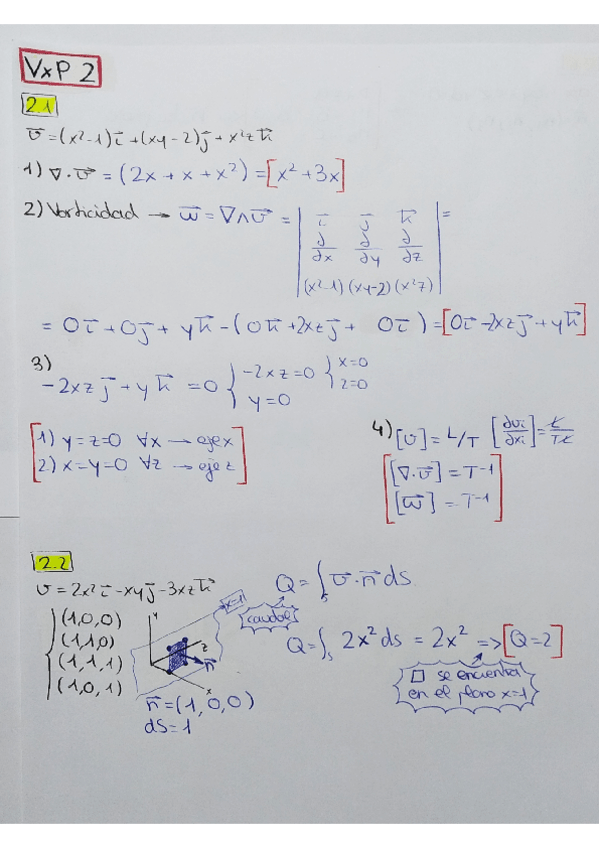 VxP 2
2.1
v⃗ = (x²-1)i⃗ + (xy-2)j⃗ + x²z k⃗
1) ∇·v⃗ = (2x + x + x²) = [x² + 3x]
2) Vorticidad → w⃗ = ∇∧v⃗ = | i⃗ j⃗ k⃗ | =
∂/∂x ∂/∂y ∂/∂z
(x²-1) (xy-2) (x²z)
= 0i⃗ + 0j⃗ + yk⃗ - (0k⃗ + 2xzj⃗ + 0i⃗) = [0i⃗ - 2xzj⃗ + yk⃗]
3)
-2xzj⃗ + yk⃗ = 0 { -2xz = 0 { x=0
y=0 z=0
1) y=z=0 ∀x → eje x
2) x=y=0 ∀z → eje z
4) [v] = L/T [∂vi/∂xi] = L/TL
[∇·v⃗] = T⁻¹
[w⃗] = T⁻¹
2.2
v = 2x²i⃗ - xyj⃗ - 3xzk⃗
(1,0,0)
(1,1,0)
(1,1,1)
(1,0,1)
y
z
x
n⃗
x=1
n⃗ = (1,0,0)
ds=1
Q = ∫s v⃗·n⃗ ds
caudal
Q = ∫s 2x² ds = 2x² => [Q=2]
□ se encuentra
en el plano x=1